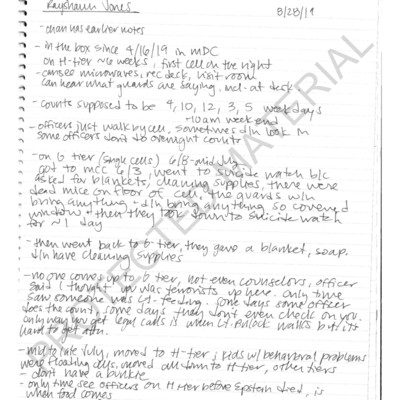 Rayshawn Jones
8/28/19
- chan has earlier notes
- in the box since 4/16/19 in MDC
on H-tier ~6 weeks, first cell on the right
- microwaves, rec desk, visit room
can hear what guards are saying incl. at desk
- counts supposed to be 9, 10, 12, 3, 5 weekdays
~10am weekend
- officers just walk by cell, sometimes d/n look in
some officers don't do overnight counts
- on G tier (single cells) 6/8 - mid July
got to MCC 6/3, went to suicide watch b/c
asked for blankets, cleaning supplies, there were
dead mice on floor of cell, the guards w/n
bring anything + d/n bring anything so covered
window + then they took down to suicide watch
for ~1 day
- then went back to G-tier, they gave a blanket, soap.
d/n have cleaning supplies
- no one comes up to G tier, not even counselors, officer
said I thought you was terrorists up here. Only time
saw someone was Lt. feeding. Some days some officer
does the count, some days they don't even check on you.
Only way you get legal calls is when Lt. walks b/c it's
hard to get attn.
- mid to late July, moved to H-tier; kids w/ behavioral problems
were flooding cells, moved all down to H tier, other tiers
- don't have a bunkie
- only time see officers on H tier before Epstein died, is
when food comes
PROTECTED MATERIAL